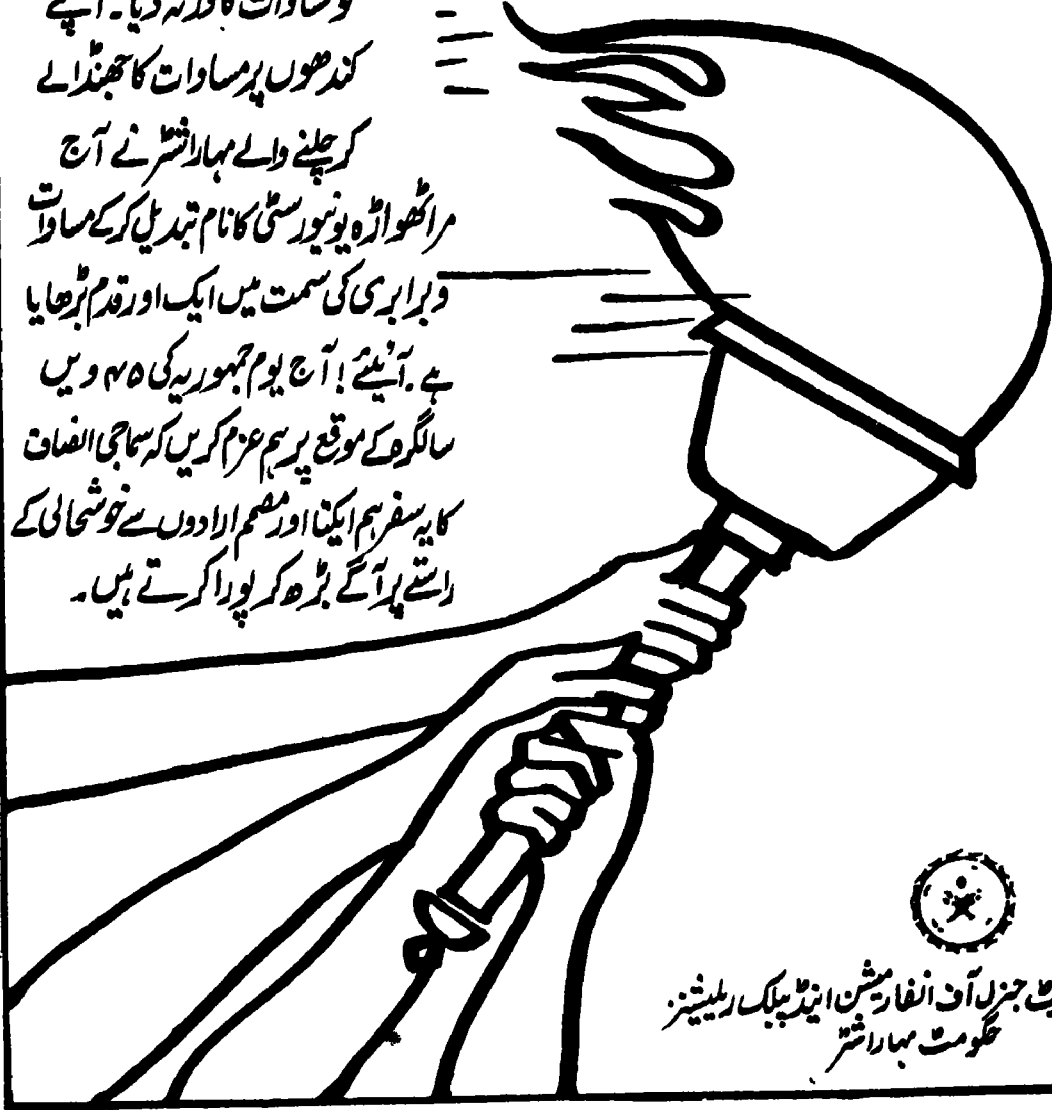 کو مساوات کا ورثہ دیا۔ اپنے
کندھوں پر مساوات کا جھنڈا لے
کر چلنے والے مہاراشٹر نے آج
مراٹھواڑہ یونیورسٹی کا نام تبدیل کرکے مساوات
وبرابری کی سمت میں ایک اور قدم بڑھایا
ہے۔ آیئے! آج یوم جمہوریہ کی ۴۵ ویں
سالگرہ کے موقع پر ہم عزم کریں کہ سماجی انصاف
کا یہ سفر ہم ایکتا اور مصمم ارادوں سے خوشحالی کے
راستے پر آگے بڑھ کر پورا کرتے ہیں۔
جنرل آف انفارمیشن اینڈ پبلک ریلیشنز
حکومت مہاراشٹر